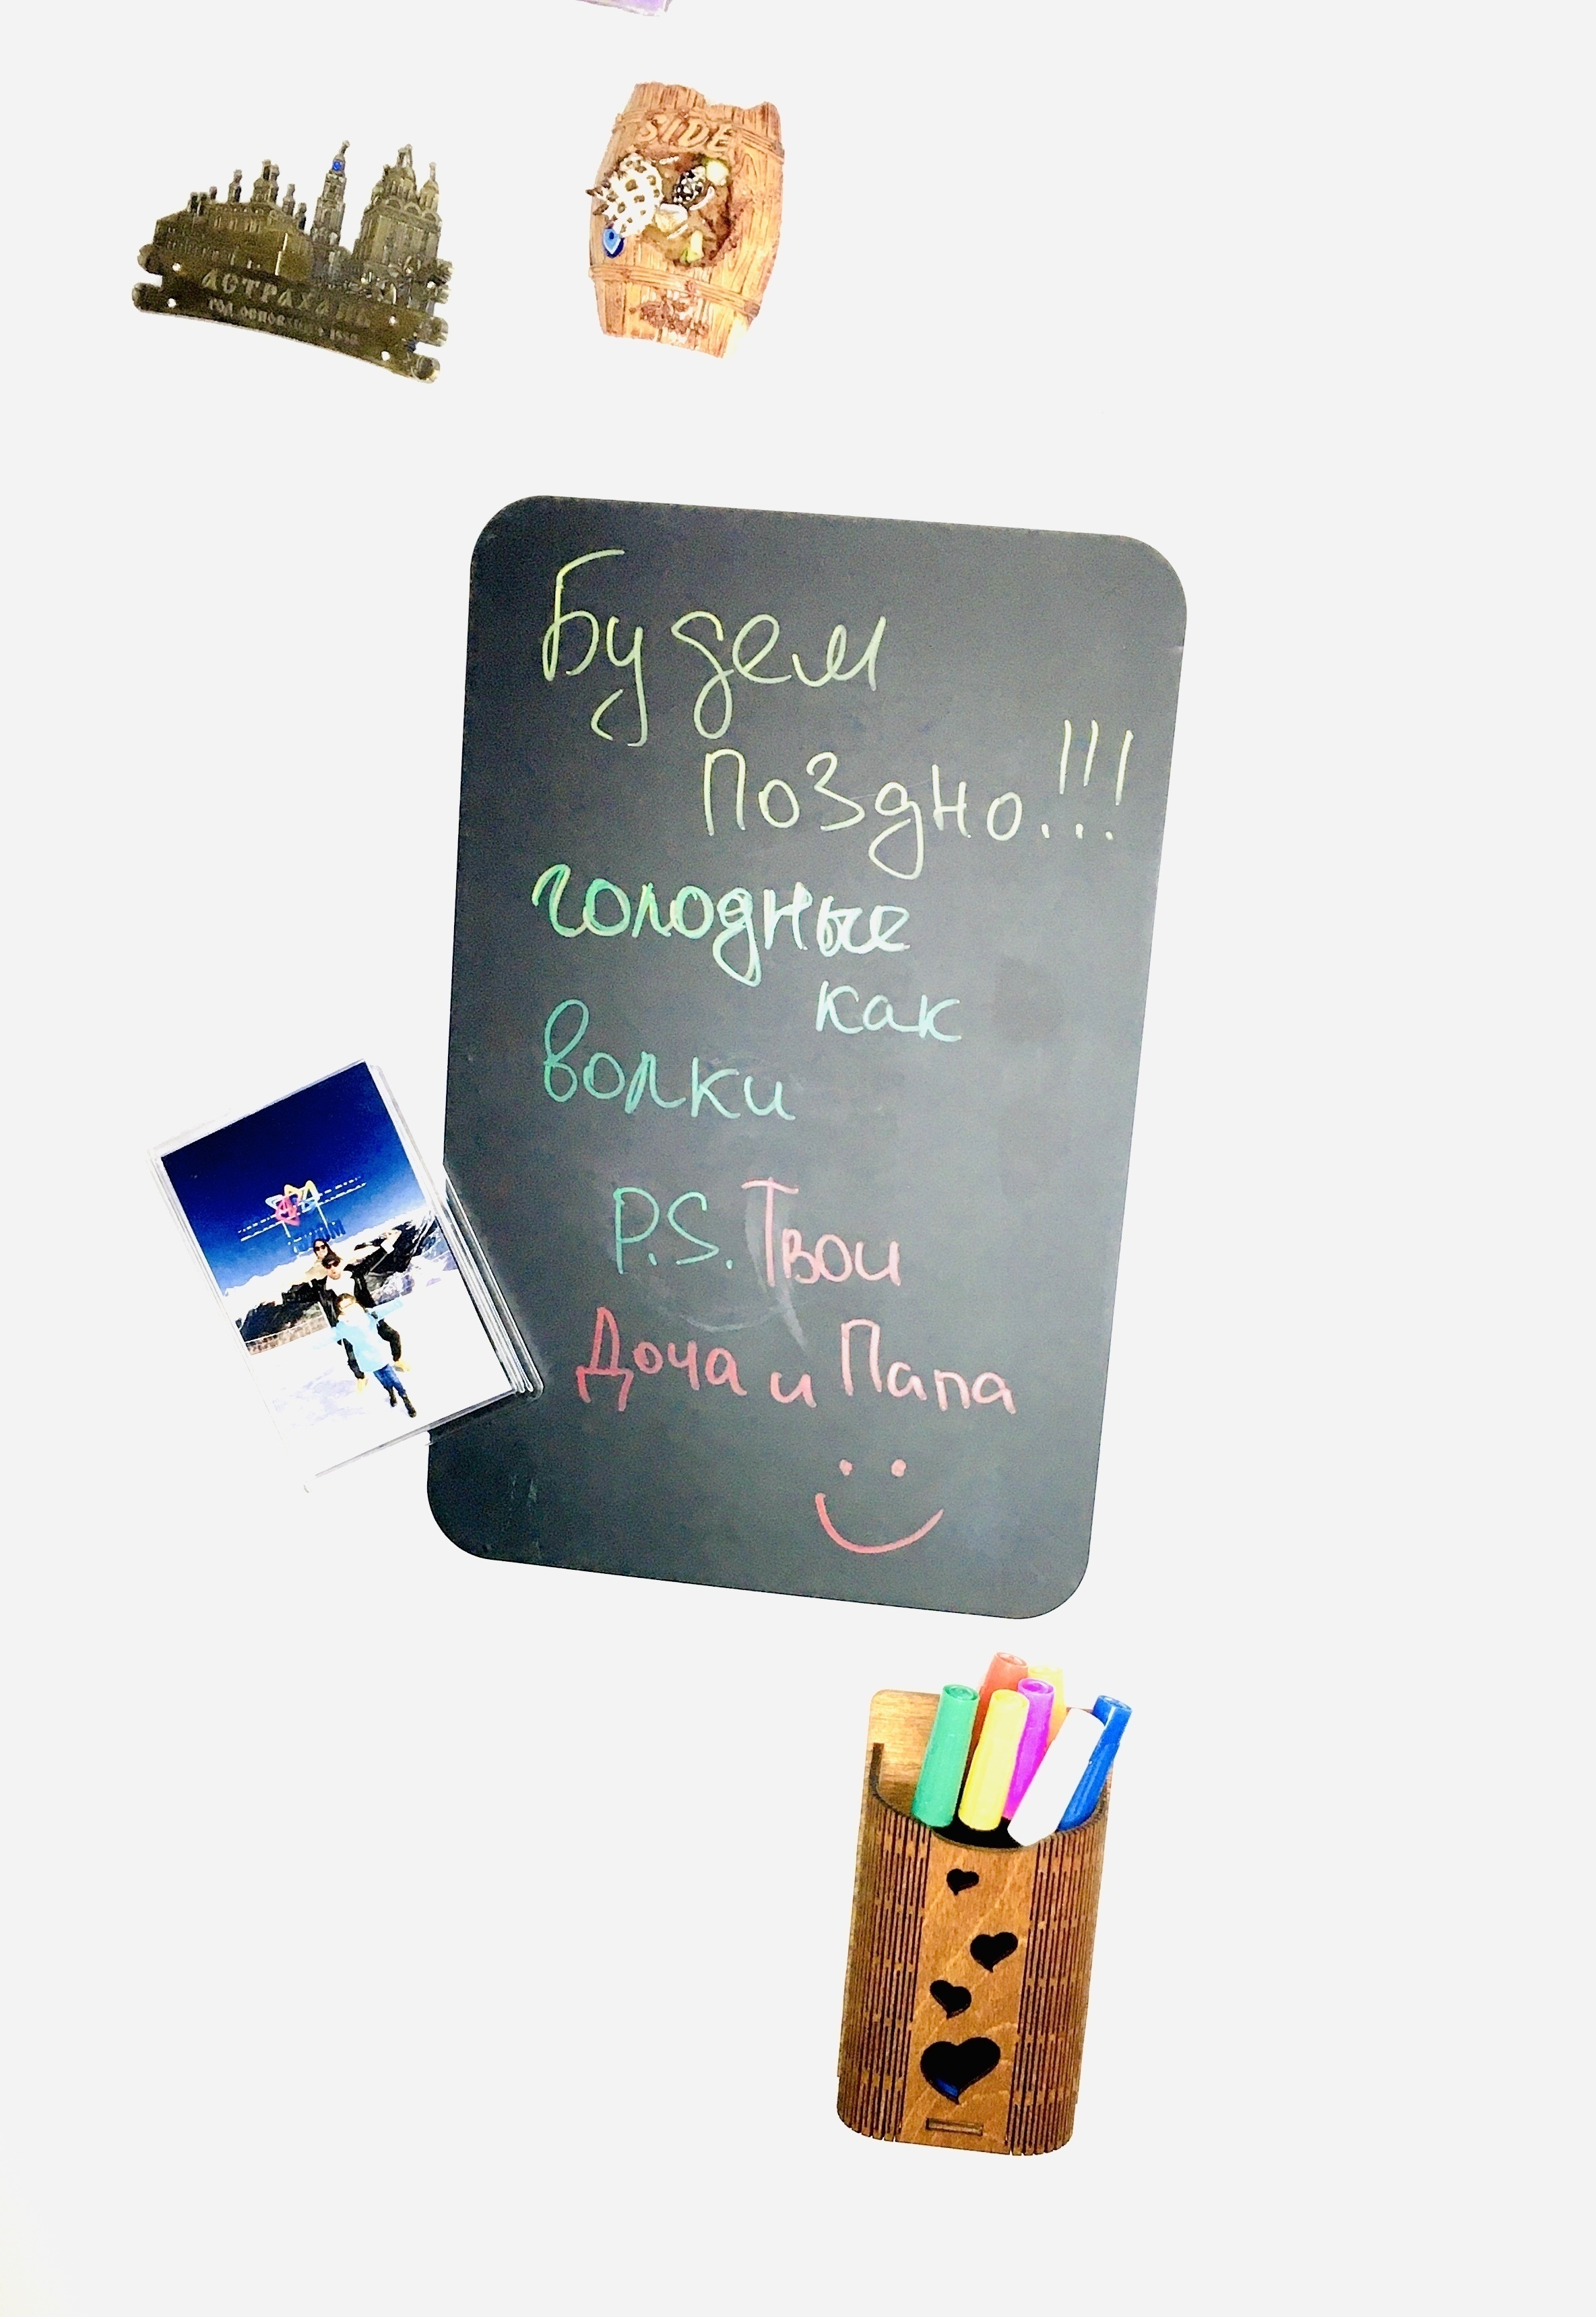 SIDE
АСТРАХАНЬ
Будем
поздно!!!
голодные
как
волки
P.S. Твои
Доча и Папа